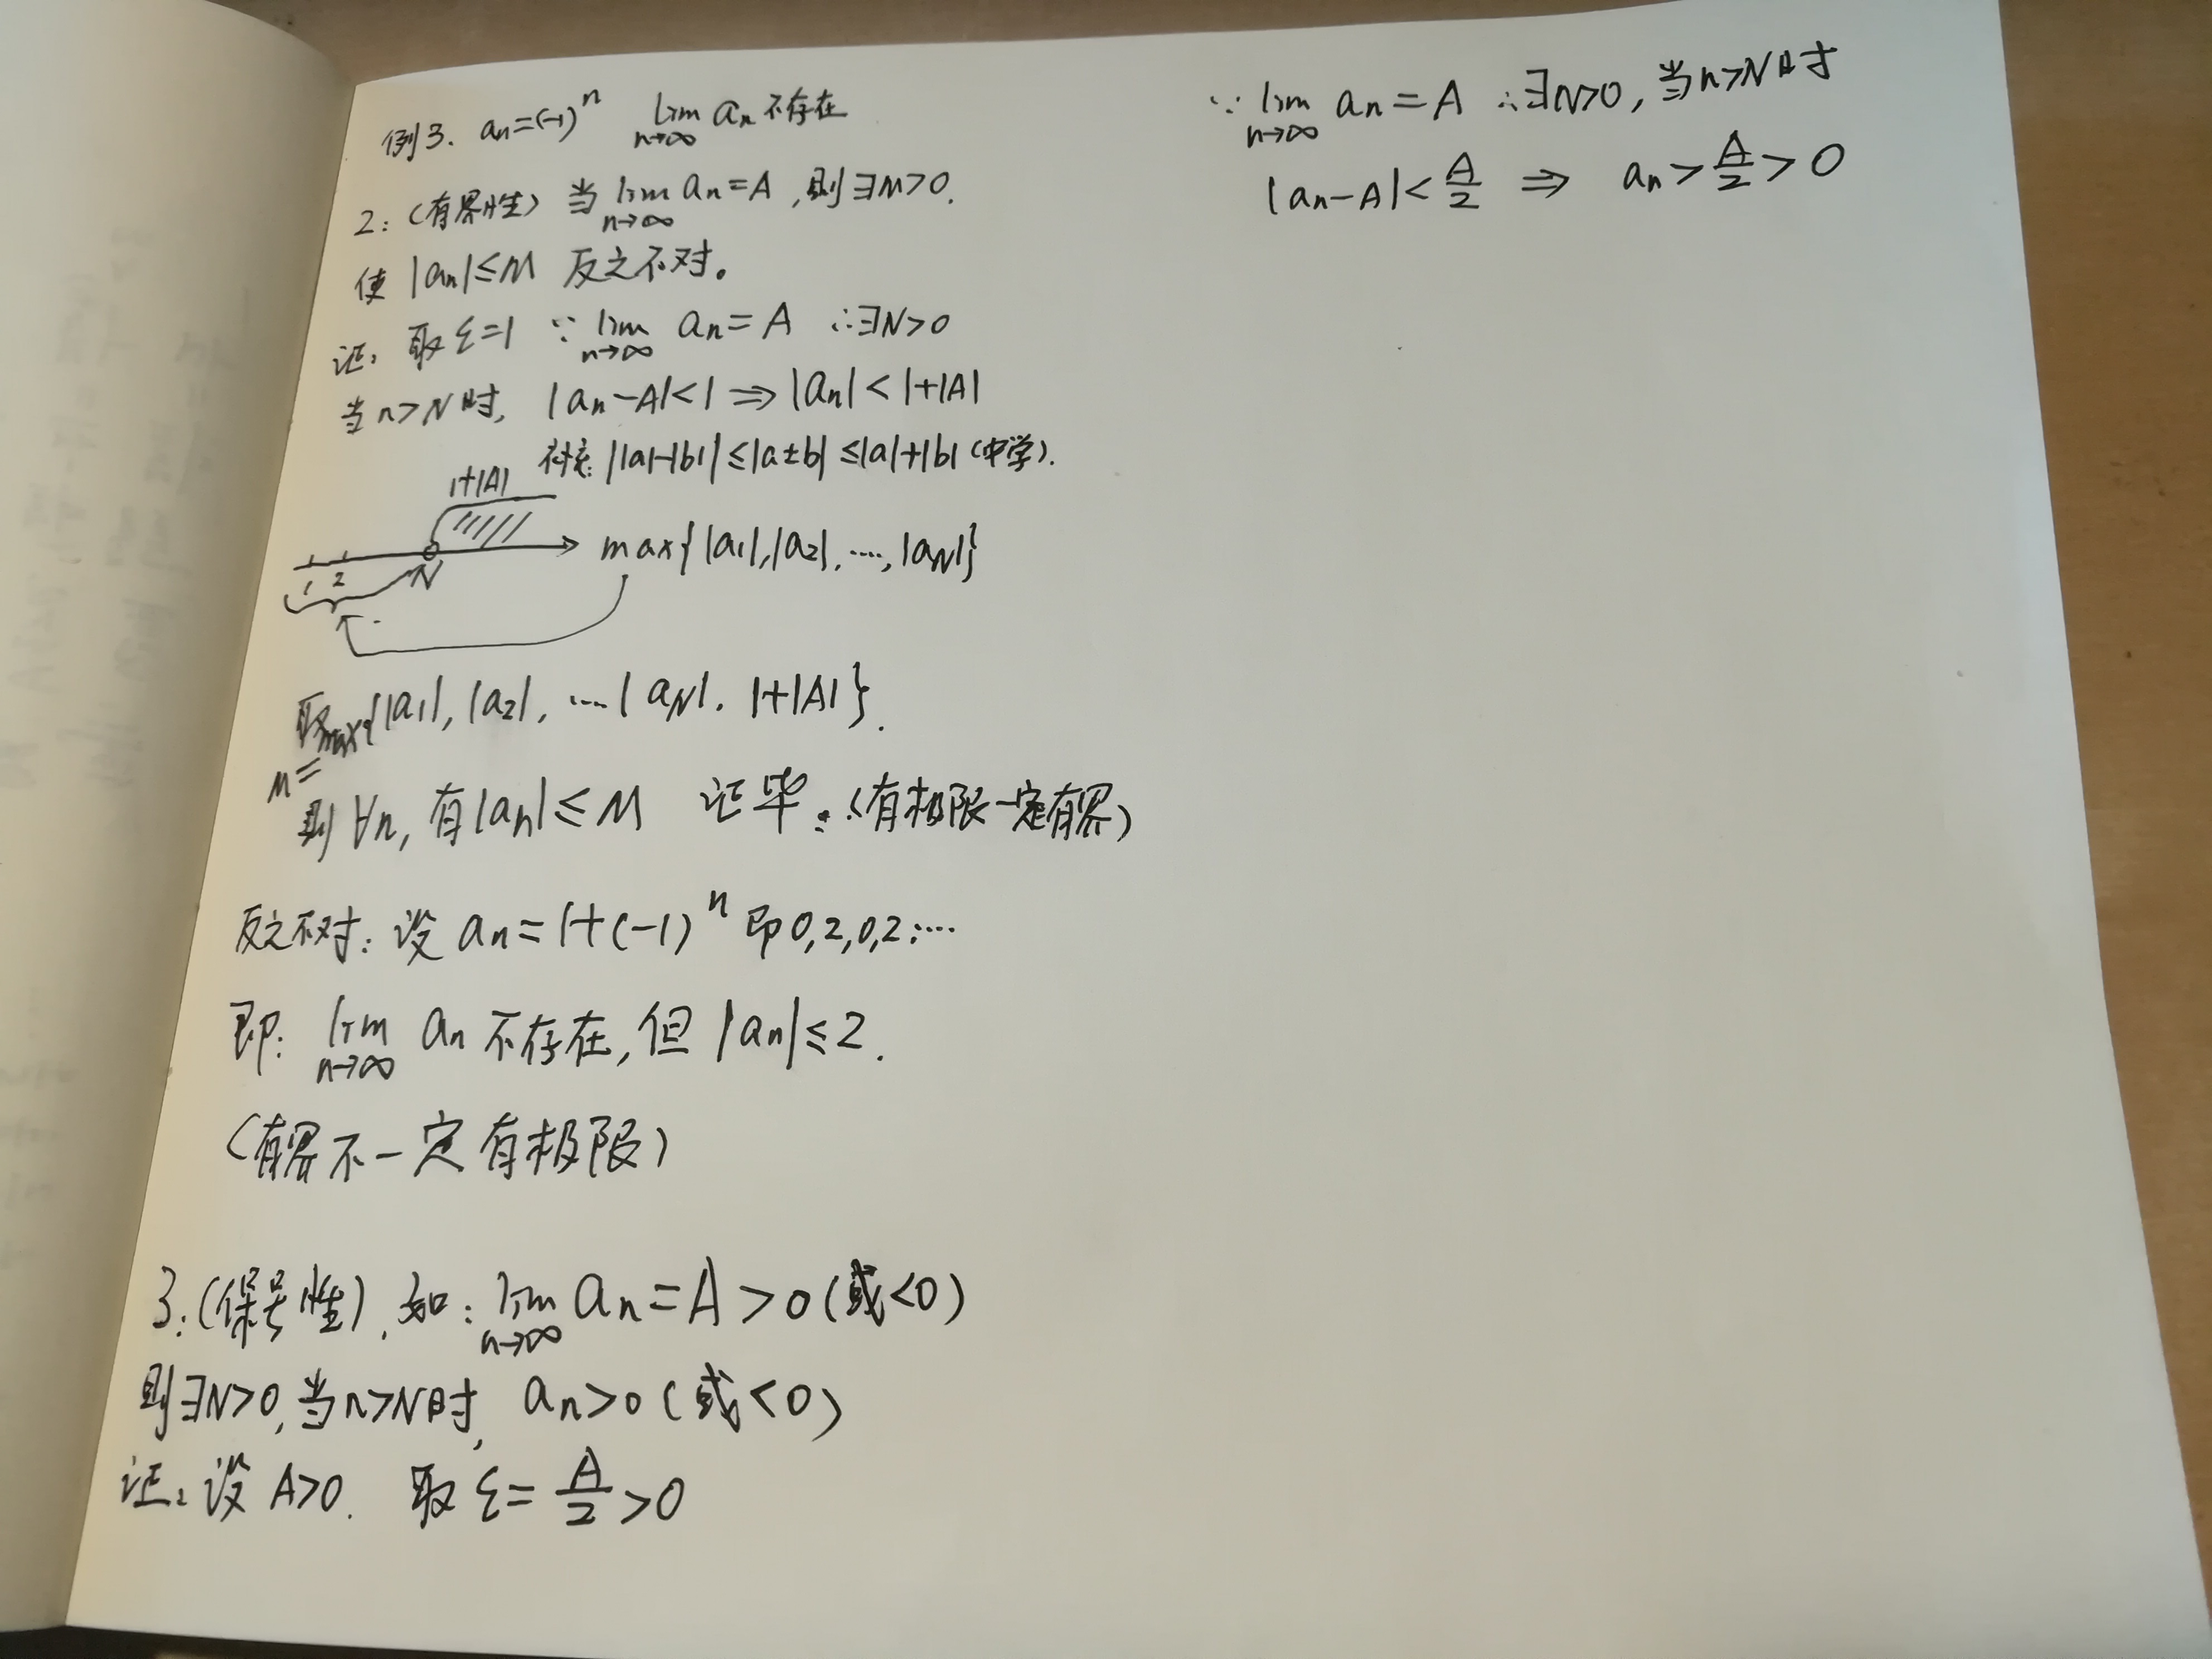 例3. aₙ=(-1)ⁿ lim n→∞ aₙ 不存在
2:(有界性) 当 lim n→∞ aₙ=A, 则∃M>0.
使 |aₙ|≤M 反之不对。
证: 取ε=1 ∵ lim n→∞ aₙ=A ∴∃N>0
当n>N时, |aₙ-A|<1 ⇒ |aₙ|<1+|A|
补充: ||a|-|b||≤|a±b|≤|a|+|b| (中学).
1+|A|
max{|a₁|,|a₂|,…,|a_N|}
1 2 N
取max{|a₁|,|a₂|,…|a_N|, 1+|A|}.
M=
则∀n, 有|aₙ|≤M 证毕:(有极限一定有界)
反之不对: 设 aₙ=1+(-1)ⁿ 即0,2,0,2,…
即: lim n→∞ aₙ 不存在,但 |aₙ|≤2.
(有界不一定有极限)
3:(保号性), 如: lim n→∞ aₙ=A>0(或<0)
则∃N>0,当n>N时, aₙ>0(或<0)
证: 设 A>0. 取ε=A/2>0
∵ lim n→∞ aₙ=A ∴∃N>0, 当n>N时
|aₙ-A|<A/2 ⇒ aₙ>A/2>0